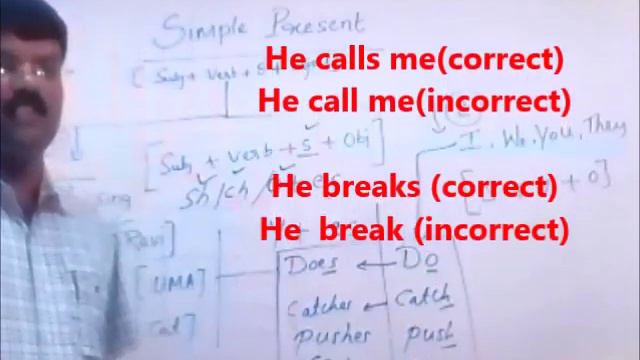 Simple Present
He calls me(correct)
[ Subj + Verb +
He call me(incorrect)
I, We, You, They
[Subj + Verb + s + Obj]
sh/ch/
He breaks (correct)
+ O]
sing
He break (incorrect)
[Ravi]
Does ← Do
[UMA]
Catches ← Catch
[Cat]
Pushes Push